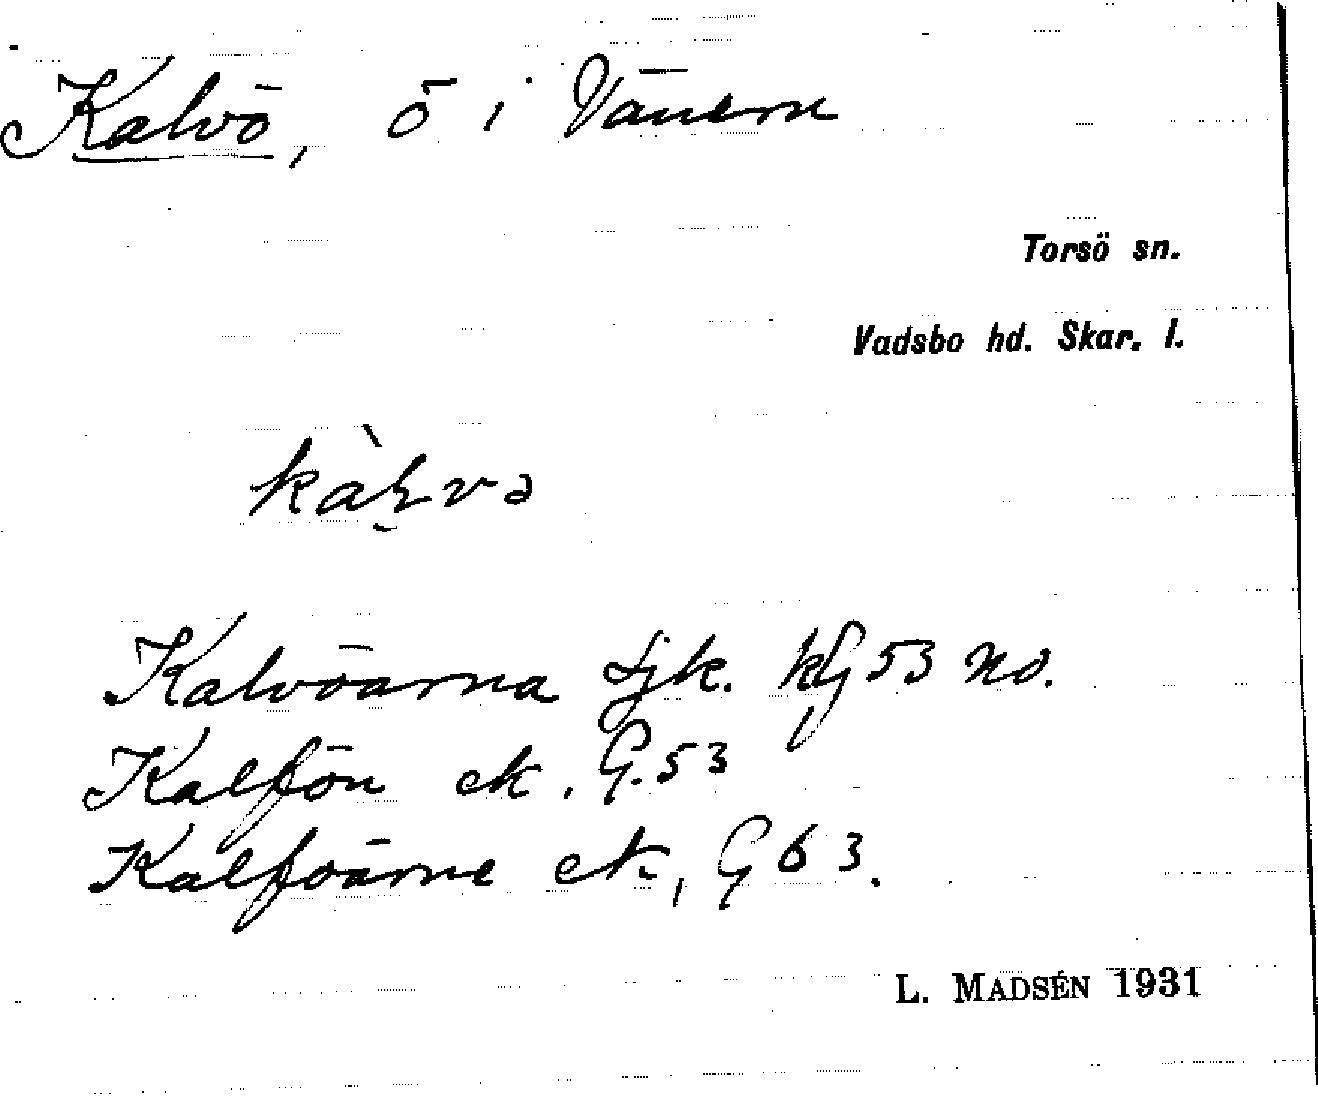 Kalvö, ö i Vänern
Torsö sn.
Vadsbo hd. Skar. l.
Kalvöarna Sjk. 53 no.
Kalfön ek. G. 53
Kalföarne ek, G 63.
L. MADSÉN 1931